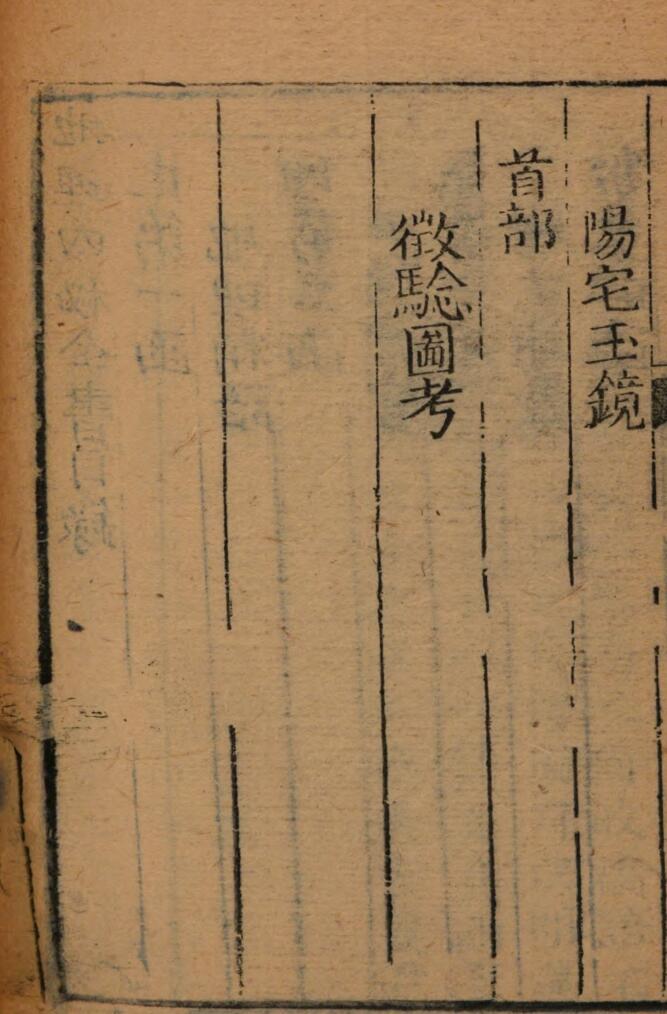 陽宅玉鏡
首部
徵騐圖考